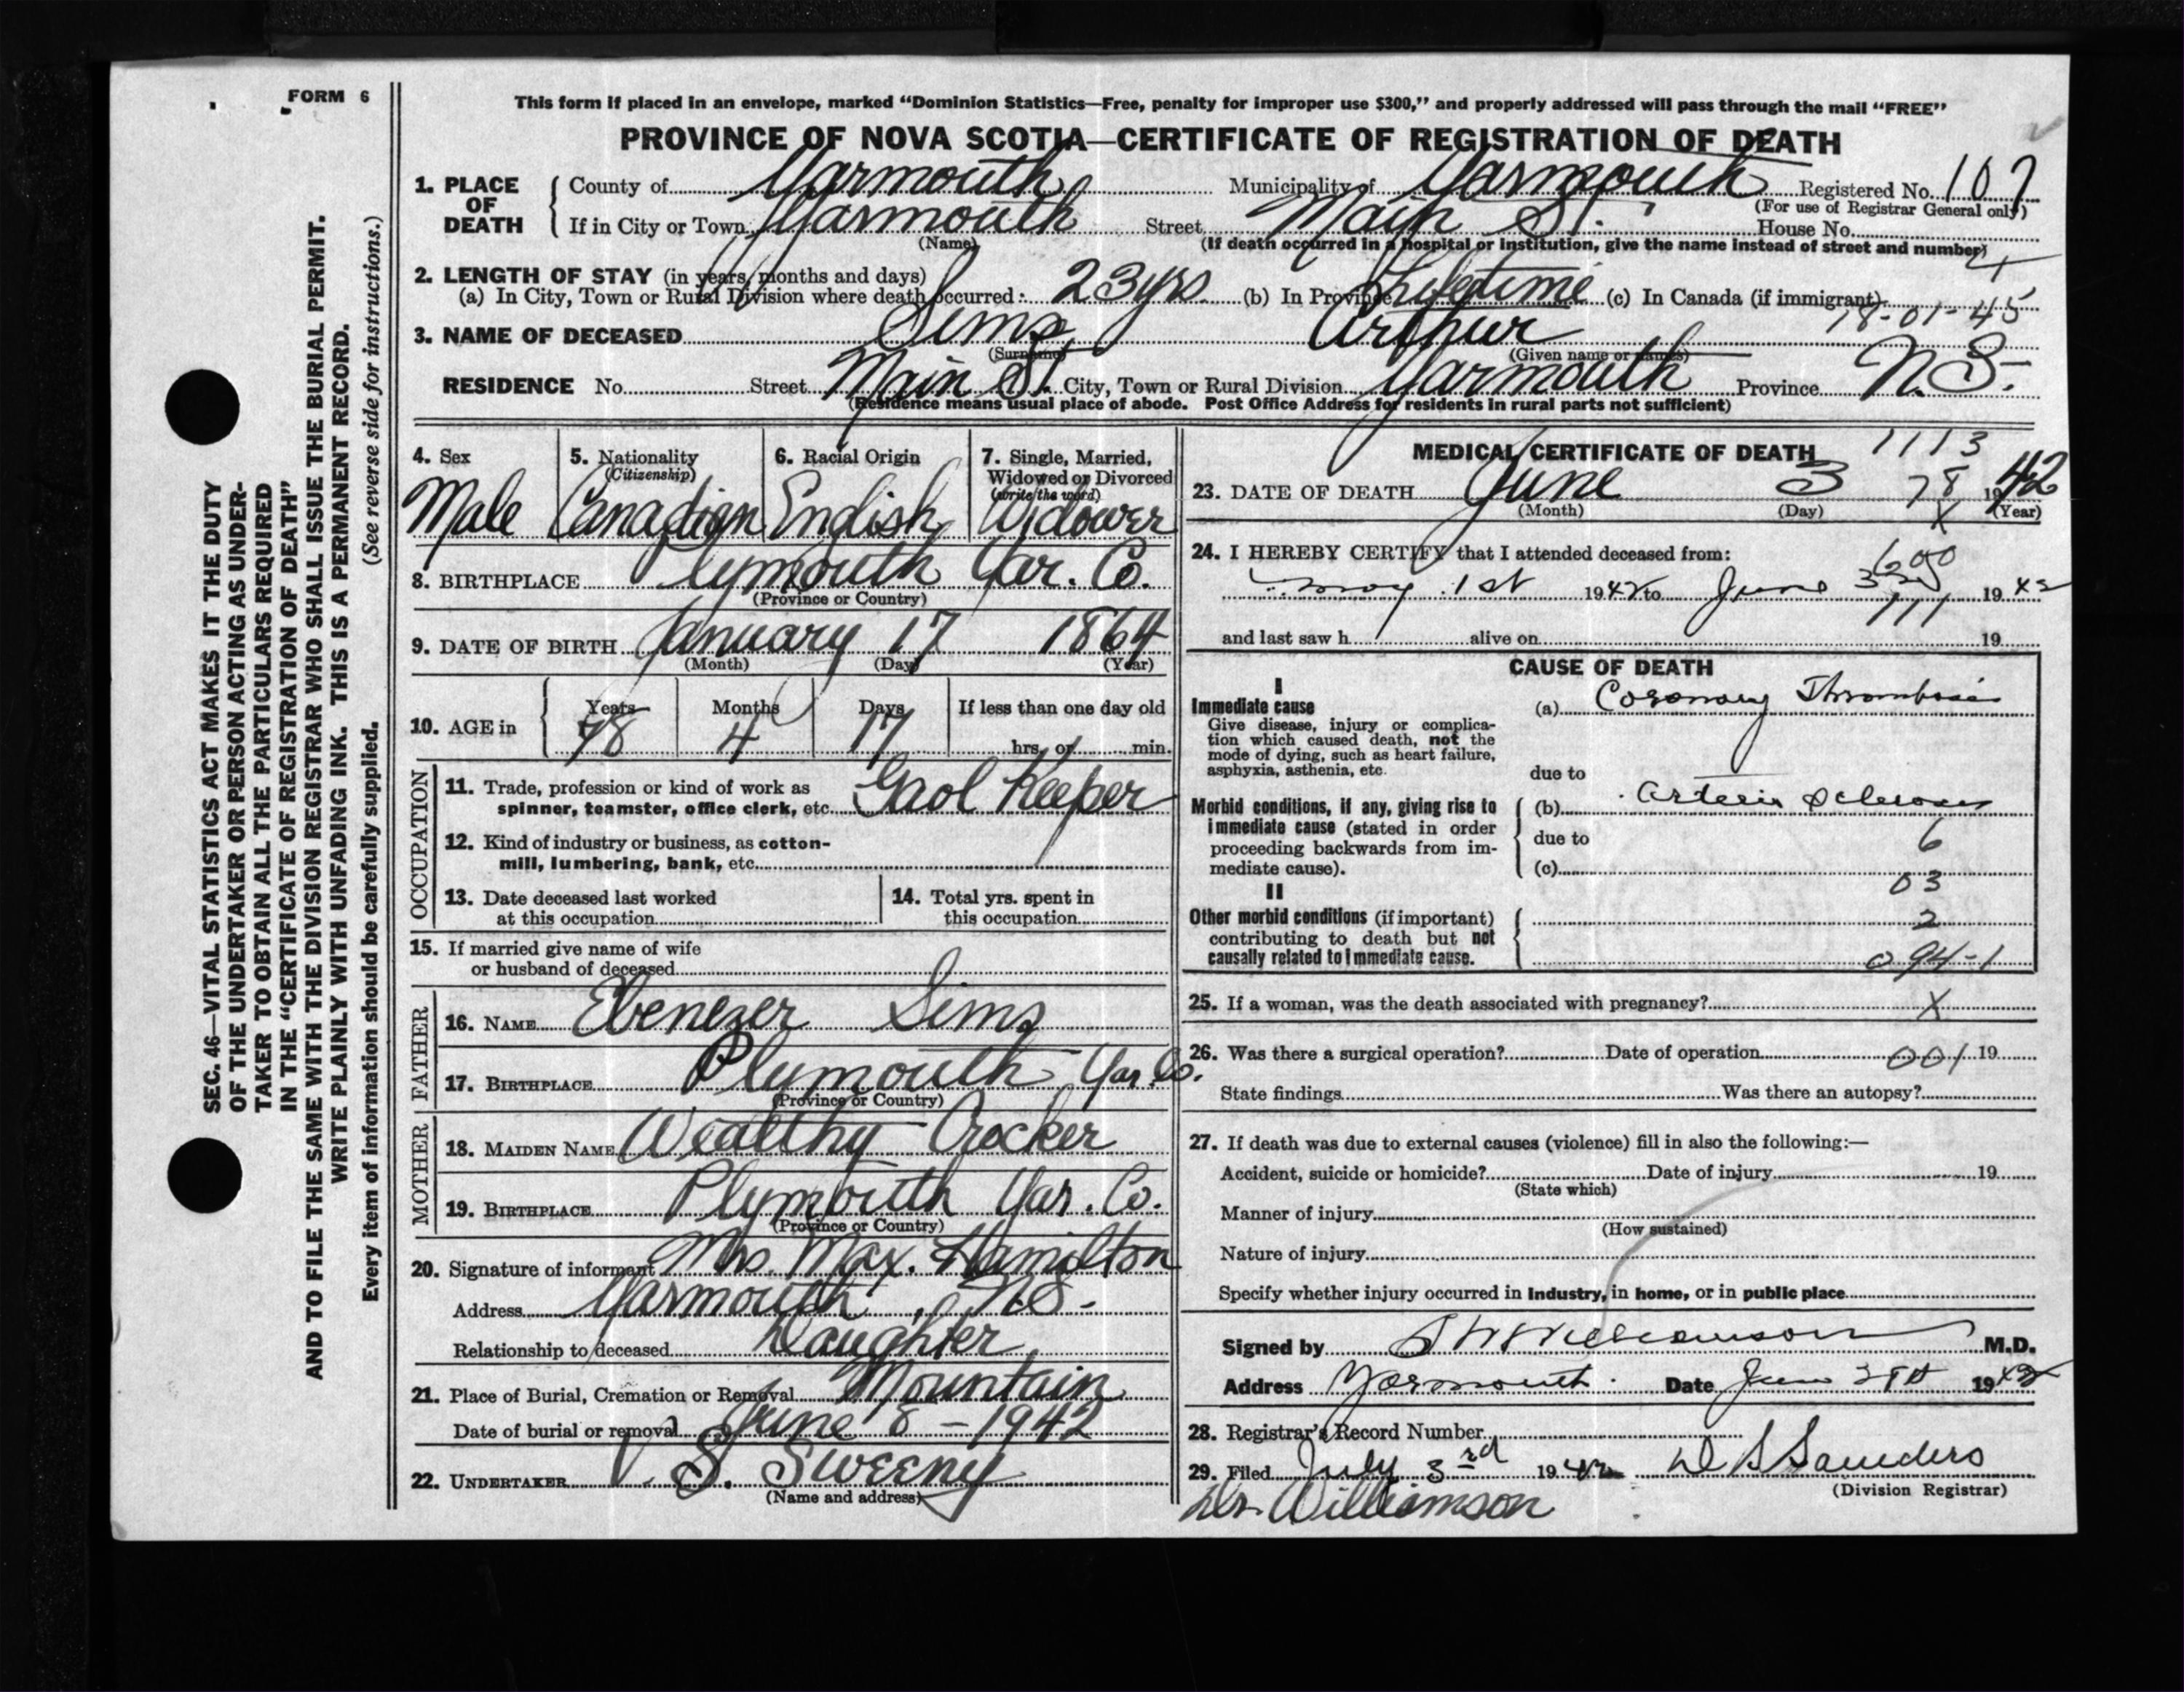 FORM 6
This form if placed in an envelope, marked “Dominion Statistics—Free, penalty for improper use $300,” and properly addressed will pass through the mail “FREE”
PROVINCE OF NOVA SCOTIA—CERTIFICATE OF REGISTRATION OF DEATH
1. PLACE OF DEATH
County of Yarmouth Municipality of Yarmouth Registered No. 107
(For use of Registrar General only)
If in City or Town Yarmouth Street Main St. House No.
(Name) (If death occurred in a hospital or institution, give the name instead of street and number)
4
2. LENGTH OF STAY (in years, months and days)
(a) In City, Town or Rural Division where death occurred: 23 yrs. (b) In Province Lifetime (c) In Canada (if immigrant)
18-01-45
3. NAME OF DECEASED Sims, Arthur
(Surname) (Given name or names)
RESIDENCE No. Street Main St. City, Town or Rural Division Yarmouth Province N.S.
(Residence means usual place of abode. Post Office Address for residents in rural parts not sufficient)
4. Sex
Male
5. Nationality
(Citizenship)
Canadian
6. Racial Origin
English
7. Single, Married, Widowed or Divorced
(write the word)
Widower
8. BIRTHPLACE Plymouth Yar. Co.
(Province or Country)
9. DATE OF BIRTH January 17 1864
(Month) (Day) (Year)
10. AGE in
Years Months Days If less than one day old
78 4 17 hrs. or min.
OCCUPATION
11. Trade, profession or kind of work as
spinner, teamster, office clerk, etc. Gaol Keeper
12. Kind of industry or business, as cotton-
mill, lumbering, bank, etc.
13. Date deceased last worked
at this occupation
14. Total yrs. spent in
this occupation
15. If married give name of wife
or husband of deceased
FATHER
16. NAME Ebenezer Sims
17. BIRTHPLACE Plymouth, Yar. Co.
(Province or Country)
MOTHER
18. MAIDEN NAME Wealthy Crocker
19. BIRTHPLACE Plymouth Yar. Co.
(Province or Country)
20. Signature of informant Mrs. Max. Hamilton
Address Yarmouth, N.S.
Relationship to deceased Daughter
21. Place of Burial, Cremation or Removal Mountain
Date of burial or removal June 8 - 1942
22. UNDERTAKER V. S. Sweeny
(Name and address)
MEDICAL CERTIFICATE OF DEATH
1113
23. DATE OF DEATH June 3 78 1942
(Month) (Day) (Year)
X
24. I HEREBY CERTIFY that I attended deceased from:
600
May 1st 1942 to June 3 1942
111
and last saw h alive on 19
CAUSE OF DEATH
I
Immediate cause
Give disease, injury or complica-
tion which caused death, not the
mode of dying, such as heart failure,
asphyxia, asthenia, etc.
(a) Coronary Thrombosis
due to
Morbid conditions, if any, giving rise to
immediate cause (stated in order
proceeding backwards from im-
mediate cause).
(b) Arterio Sclerosis
due to 6
(c)
03
II
Other morbid conditions (if important)
contributing to death but not
causally related to immediate cause.
2
094-1
25. If a woman, was the death associated with pregnancy? X
26. Was there a surgical operation? Date of operation 001 19
State findings Was there an autopsy?
27. If death was due to external causes (violence) fill in also the following:—
Accident, suicide or homicide? Date of injury 19
(State which)
Manner of injury
(How sustained)
Nature of injury
Specify whether injury occurred in industry, in home, or in public place
Signed by Williamson M.D.
Address Yarmouth. Date June 1942
28. Registrar's Record Number
29. Filed July 3rd 1942 Saunders
(Division Registrar)
Dr. Williamson
SEC. 46—VITAL STATISTICS ACT MAKES IT THE DUTY
OF THE UNDERTAKER OR PERSON ACTING AS UNDER-
TAKER TO OBTAIN ALL THE PARTICULARS REQUIRED
IN THE “CERTIFICATE OF REGISTRATION OF DEATH”
AND TO FILE THE SAME WITH THE DIVISION REGISTRAR WHO SHALL ISSUE THE BURIAL PERMIT.
WRITE PLAINLY WITH UNFADING INK. THIS IS A PERMANENT RECORD.
Every item of information should be carefully supplied. (See reverse side for instructions.)